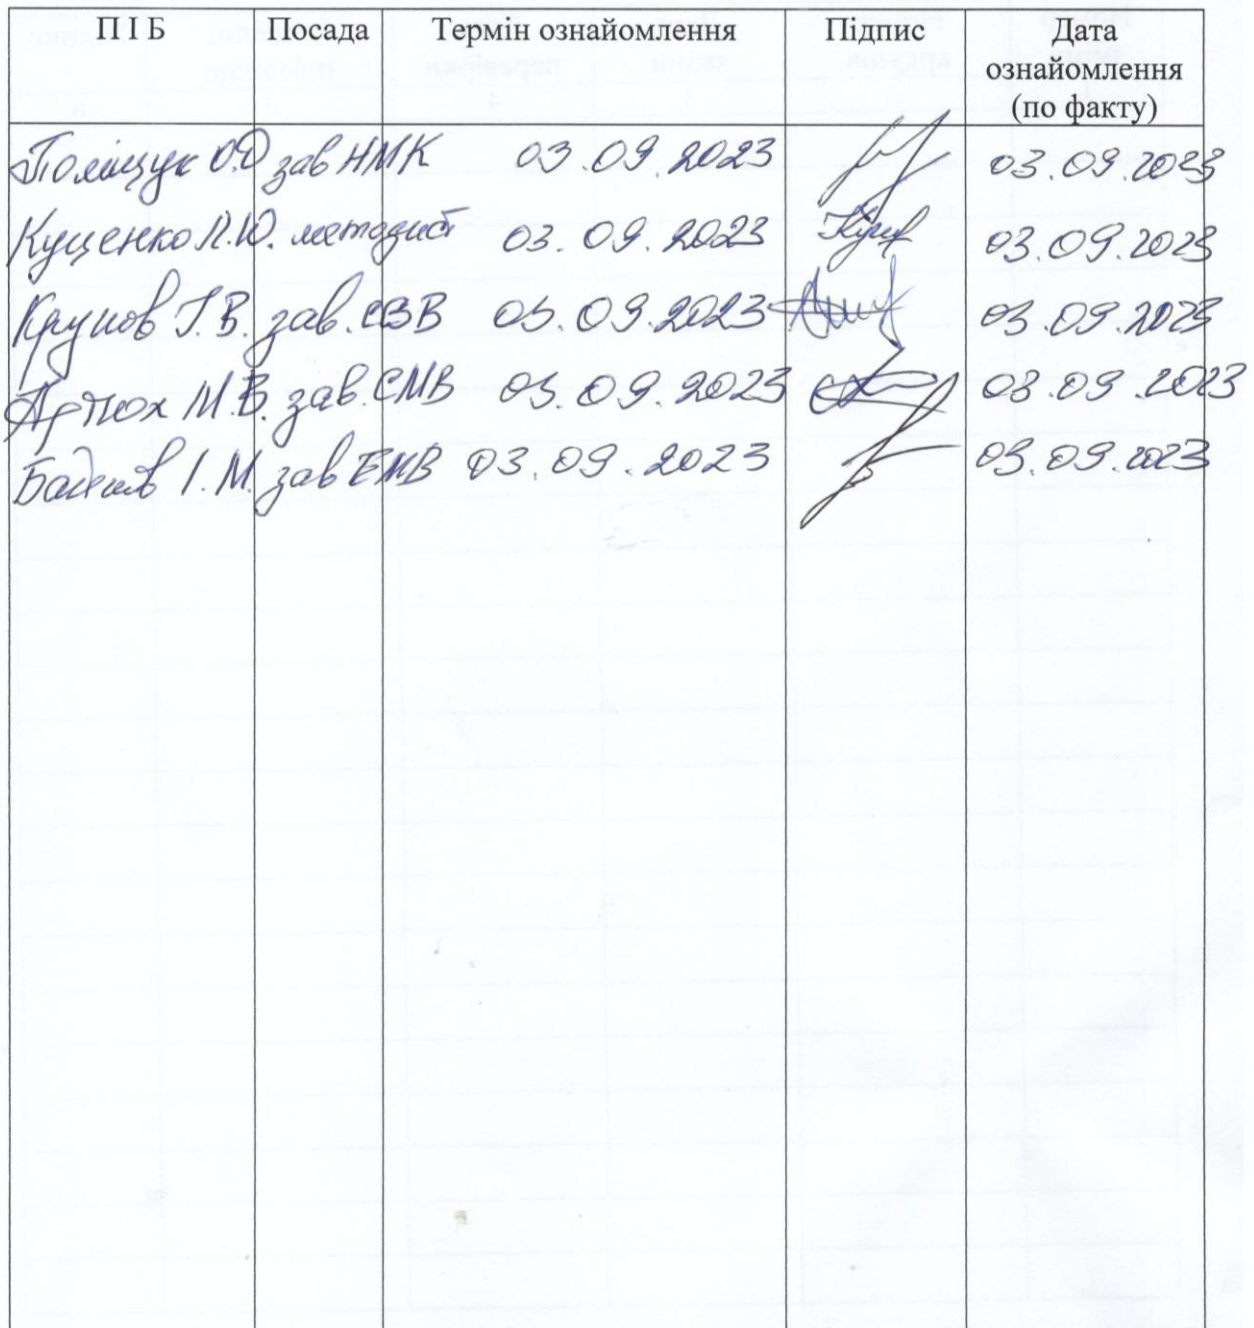 П І Б Посада Термін ознайомлення Підпис Дата
ознайомлення
(по факту)
Поліщук О.О зав НМК 03.09.2023 03.09.2023
Куценко Л.Ю. методист 03.09.2023 03.09.2023
Крупов Г.В. зав. 03.09.2023 03.09.2023
Артюх М.В. зав. СМВ 03.09.2023 03.09.2023
І.М. зав ЕМВ 03.09.2023 03.09.2023